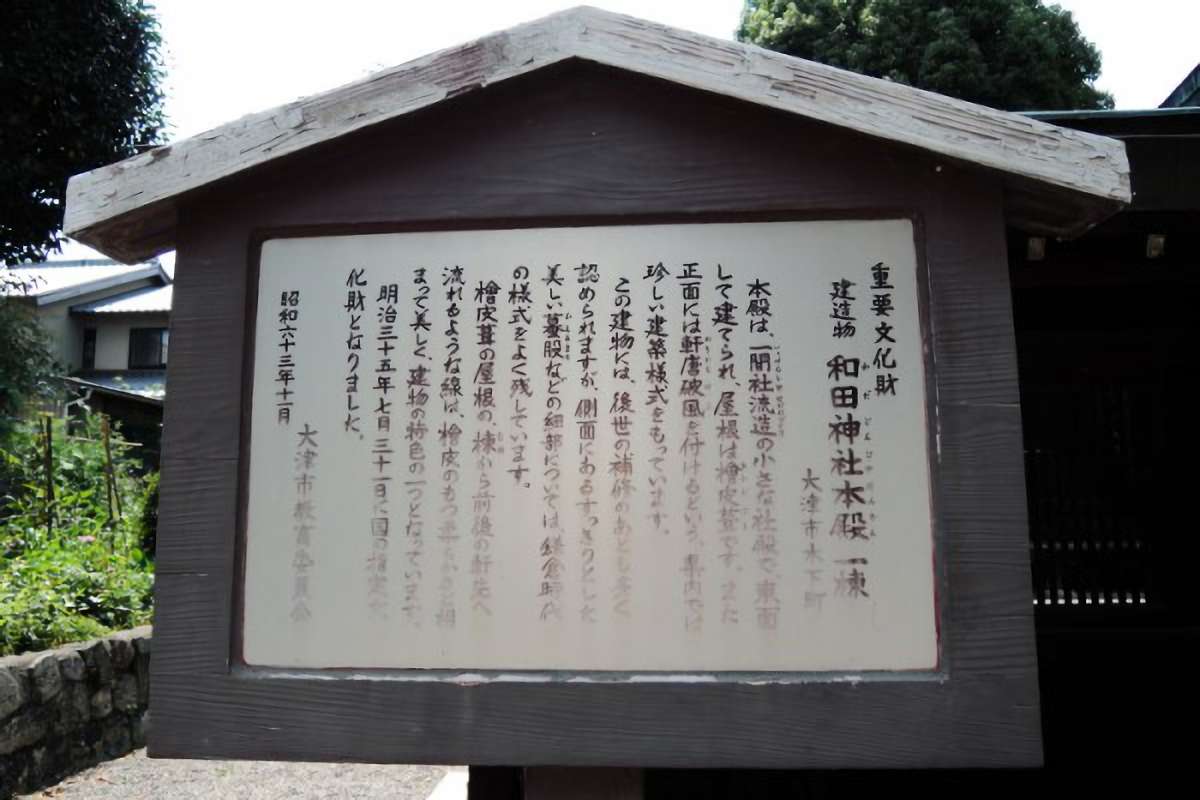 重要文化財
建造物 和田神社本殿 一棟
わだじんじゃほんでん
大津市木下町
本殿は、一間社流造の小さな社殿で、東面
して建てられ、屋根は檜皮葺です。また
正面には軒唐破風を付けるという、県内では
珍しい建築様式をもっています。
この建物には、後世の補修のあとも多く
認められますが、側面にあるすっきりとした
美しい蟇股などの細部については、鎌倉時代
の様式をよく残しています。
檜皮葺の屋根の、棟から前後の軒先へ
流れるような線は、檜皮のもつ柔らかさと相
まって美しく、建物の特色の一つとなっています。
明治三十五年七月三十一日に国の指定文
化財となりました。
昭和六十三年十一月
大津市教育委員会